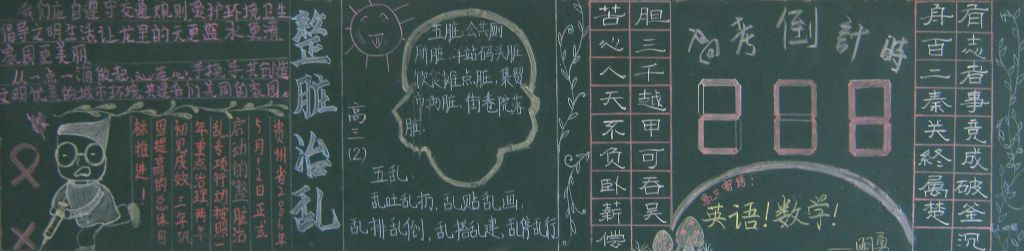 我们应自遵守交通规则爱护环境卫生
倡导文明生活让龙里的天更蓝水更清
家园更美丽
从一点一滴做起,心连心,手挽手共创造
文明优美的城市环境共建我们美丽的家园。
贵州省2006年
5月12日正式
启动的整脏治
乱专项行动按照一
年重点治理两年
初见成效三年巩
固提高的总体目
标推进!
整脏治乱
高三(2)
五脏:公共厕
所脏,车站码头脏,
饮食摊点脏,集贸
市场脏,街巷院落
脏.
五乱:
乱吐乱扔,乱贴乱画,
乱排乱倒,乱搭乱建,乱停乱行
胆三千越甲可吞吴
苦心人天不负卧薪偿
高考倒計時
208
高三寄语:
英语!数学!
有志者事竟成破釜沉
舟百二秦关終属楚